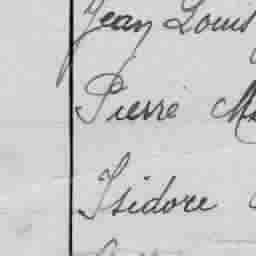 Jean Louis
Pierre
Isidore